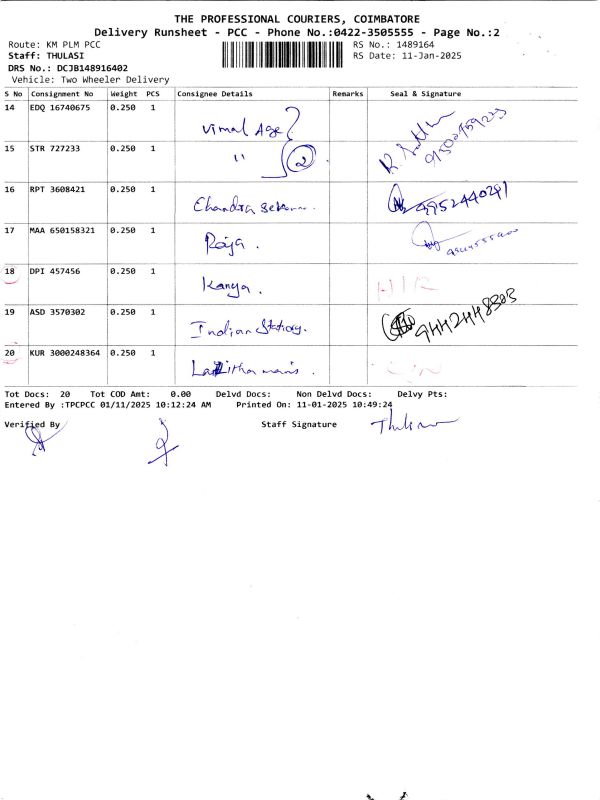 THE PROFESSIONAL COURIERS, COIMBATORE
Delivery Runsheet - PCC - Phone No.:0422-3505555 - Page No.:2
Route: KM PLM PCC
RS No.: 1489164
Staff: THULASI
RS Date: 11-Jan-2025
DRS No.: DCJB148916402
Vehicle: Two Wheeler Delivery
S No Consignment No Weight PCS Consignee Details Remarks Seal & Signature
14 EDQ 16740675 0.250 1 Vimal Age
15 STR 727233 0.250 1 " 2
16 RPT 3608421 0.250 1 Chandra 9952440291
17 MAA 650158321 0.250 1 Raja.
18 DPI 457456 0.250 1 Kanya.
19 ASD 3570302 0.250 1 Indian 9442448303
20 KUR 3000248364 0.250 1
Tot Docs: 20 Tot COD Amt: 0.00 Delvd Docs: Non Delvd Docs: Delvy Pts:
Entered By :TPCPCC 01/11/2025 10:12:24 AM Printed On: 11-01-2025 10:49:24
Verified By Staff Signature